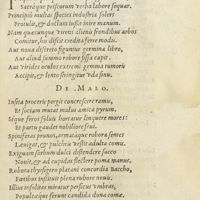 Sacraque priscorum verba labore sequar.
Principiò multas species industria solers
Protulit, & doctum iussit inire manum.
Nam quæcunque virens alienis frondibus arbos
Comitur, his discit credita ferre modis.
Aut noua discreto figuntur germina libro,
Aut aliud summo robore fissa capit.
Aut virides oculos externi gemma tumoris
Accipit, & lento stringitur vda sinu.
DE MALO.
Insita proceris pergit concrescere ramis,
Et sociam mutat malus amica pyrum.
Seque feros siluis hortatur linquere mores
Et partu gaudet nobiliore frui.
Spiniferas prunos, armataque robora sentes
Leuigat, & pulchris vestit adulta comis.
Exiguam sorbum dulci distendere succo
Nouit, & ad cupidas flectere poma manus.
Robora thyrsigero platani concordia Baccho,
Fœtibus instituit plena rubere nouis.
Illius insolitas miratur persicus vmbras,
Populeæque ferunt candida dona comæ.